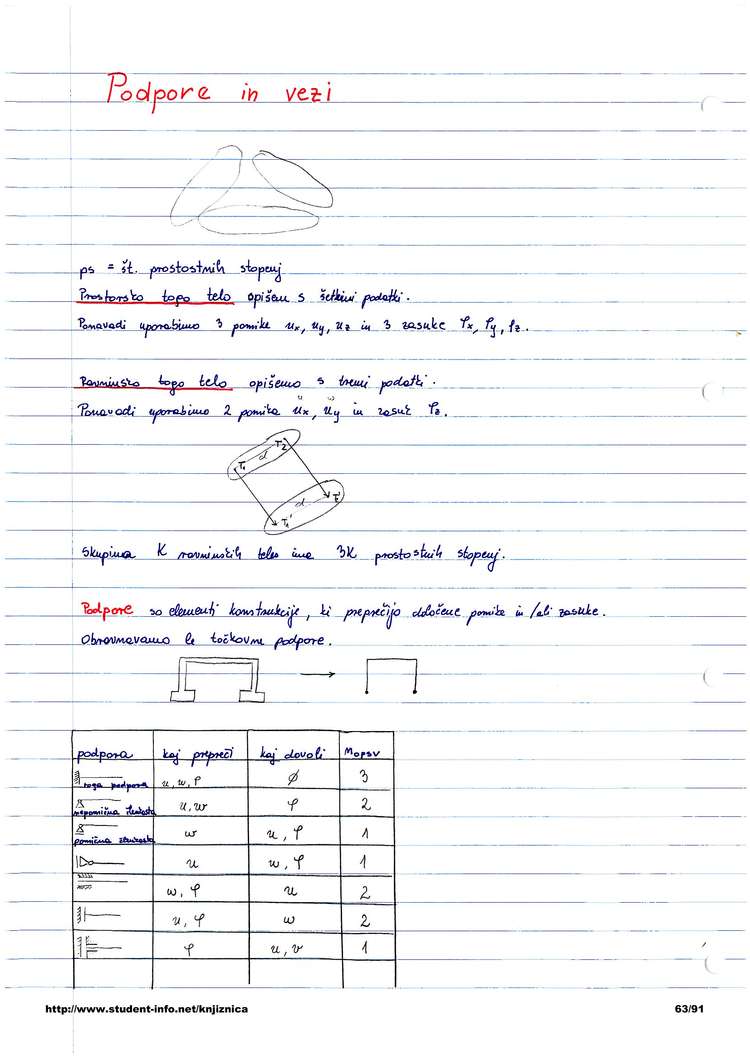 Podpore in vezi
ps = št. prostostnih stopenj
Prostorsko togo telo opišemo s šetkimi podatki.
Ponavadi uporabimo 3 pomike ux, uy, uz in 3 zasuke φx, φy, φz.
Ravninsko togo telo opišemo s tremi podatki.
u w
Ponavadi uporabimo 2 pomika ux, uy in zasuk φz.
T1 d T2
T1' d T2'
Skupina K ravninskih teles ima 3K prostostnih stopenj.
Podpore so elementi konstrukcije, ki preprečijo določene pomike in/ali zasuke.
Obravnavamo le točkovne podpore.
podpora kaj prepreči kaj dovoli
toga podpora u, w, φ ∅ 3
nepomična členkasta u, w φ 2
pomična členkasta w u, φ 1
u w, φ 1
w, φ u 2
u, φ w 2
φ u, v 1
http://www.student-info.net/knjiznica 63/91